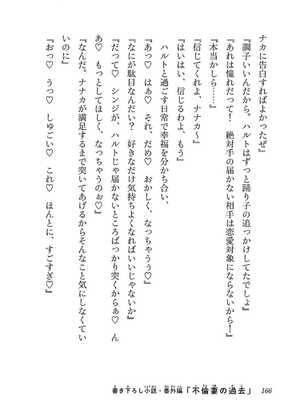 ナカに告白すればよかったぜ』
『調子いいんだから。ハルトはずっと踊り子の追っかけしてたでしょ』
『あれは憧れだって！　絶対手の届かない相手は恋愛対象にならないから！』
『本当かしら……』
『信じてくれよ、ナナカ〜』
『はいはい、信じるわよ、もう』
ハルトと過ごす日常で幸福を分かち合い、
『あっ♡　はぁ♡　それ、だめ♡　おかしく、なっちゃうぅ♡』
『なにが駄目なんだい？　好きなだけ気持ちよくなればいいじゃないか』
『だって♡　シンジが、ハルトじゃ届かないところばっかり突くからぁ♡　ん
あ♡　もっとしてほしく、なっちゃうのぉ♡』
『なんだ。ナナカが満足するまで突いてあげるからそんなこと気にしなくてい
いのに』
『おっ♡　うっ♡　しゅごい♡　これ♡　ほんとに、すごすぎ♡』
書き下ろし小説・番外編「不倫妻の過去」
166